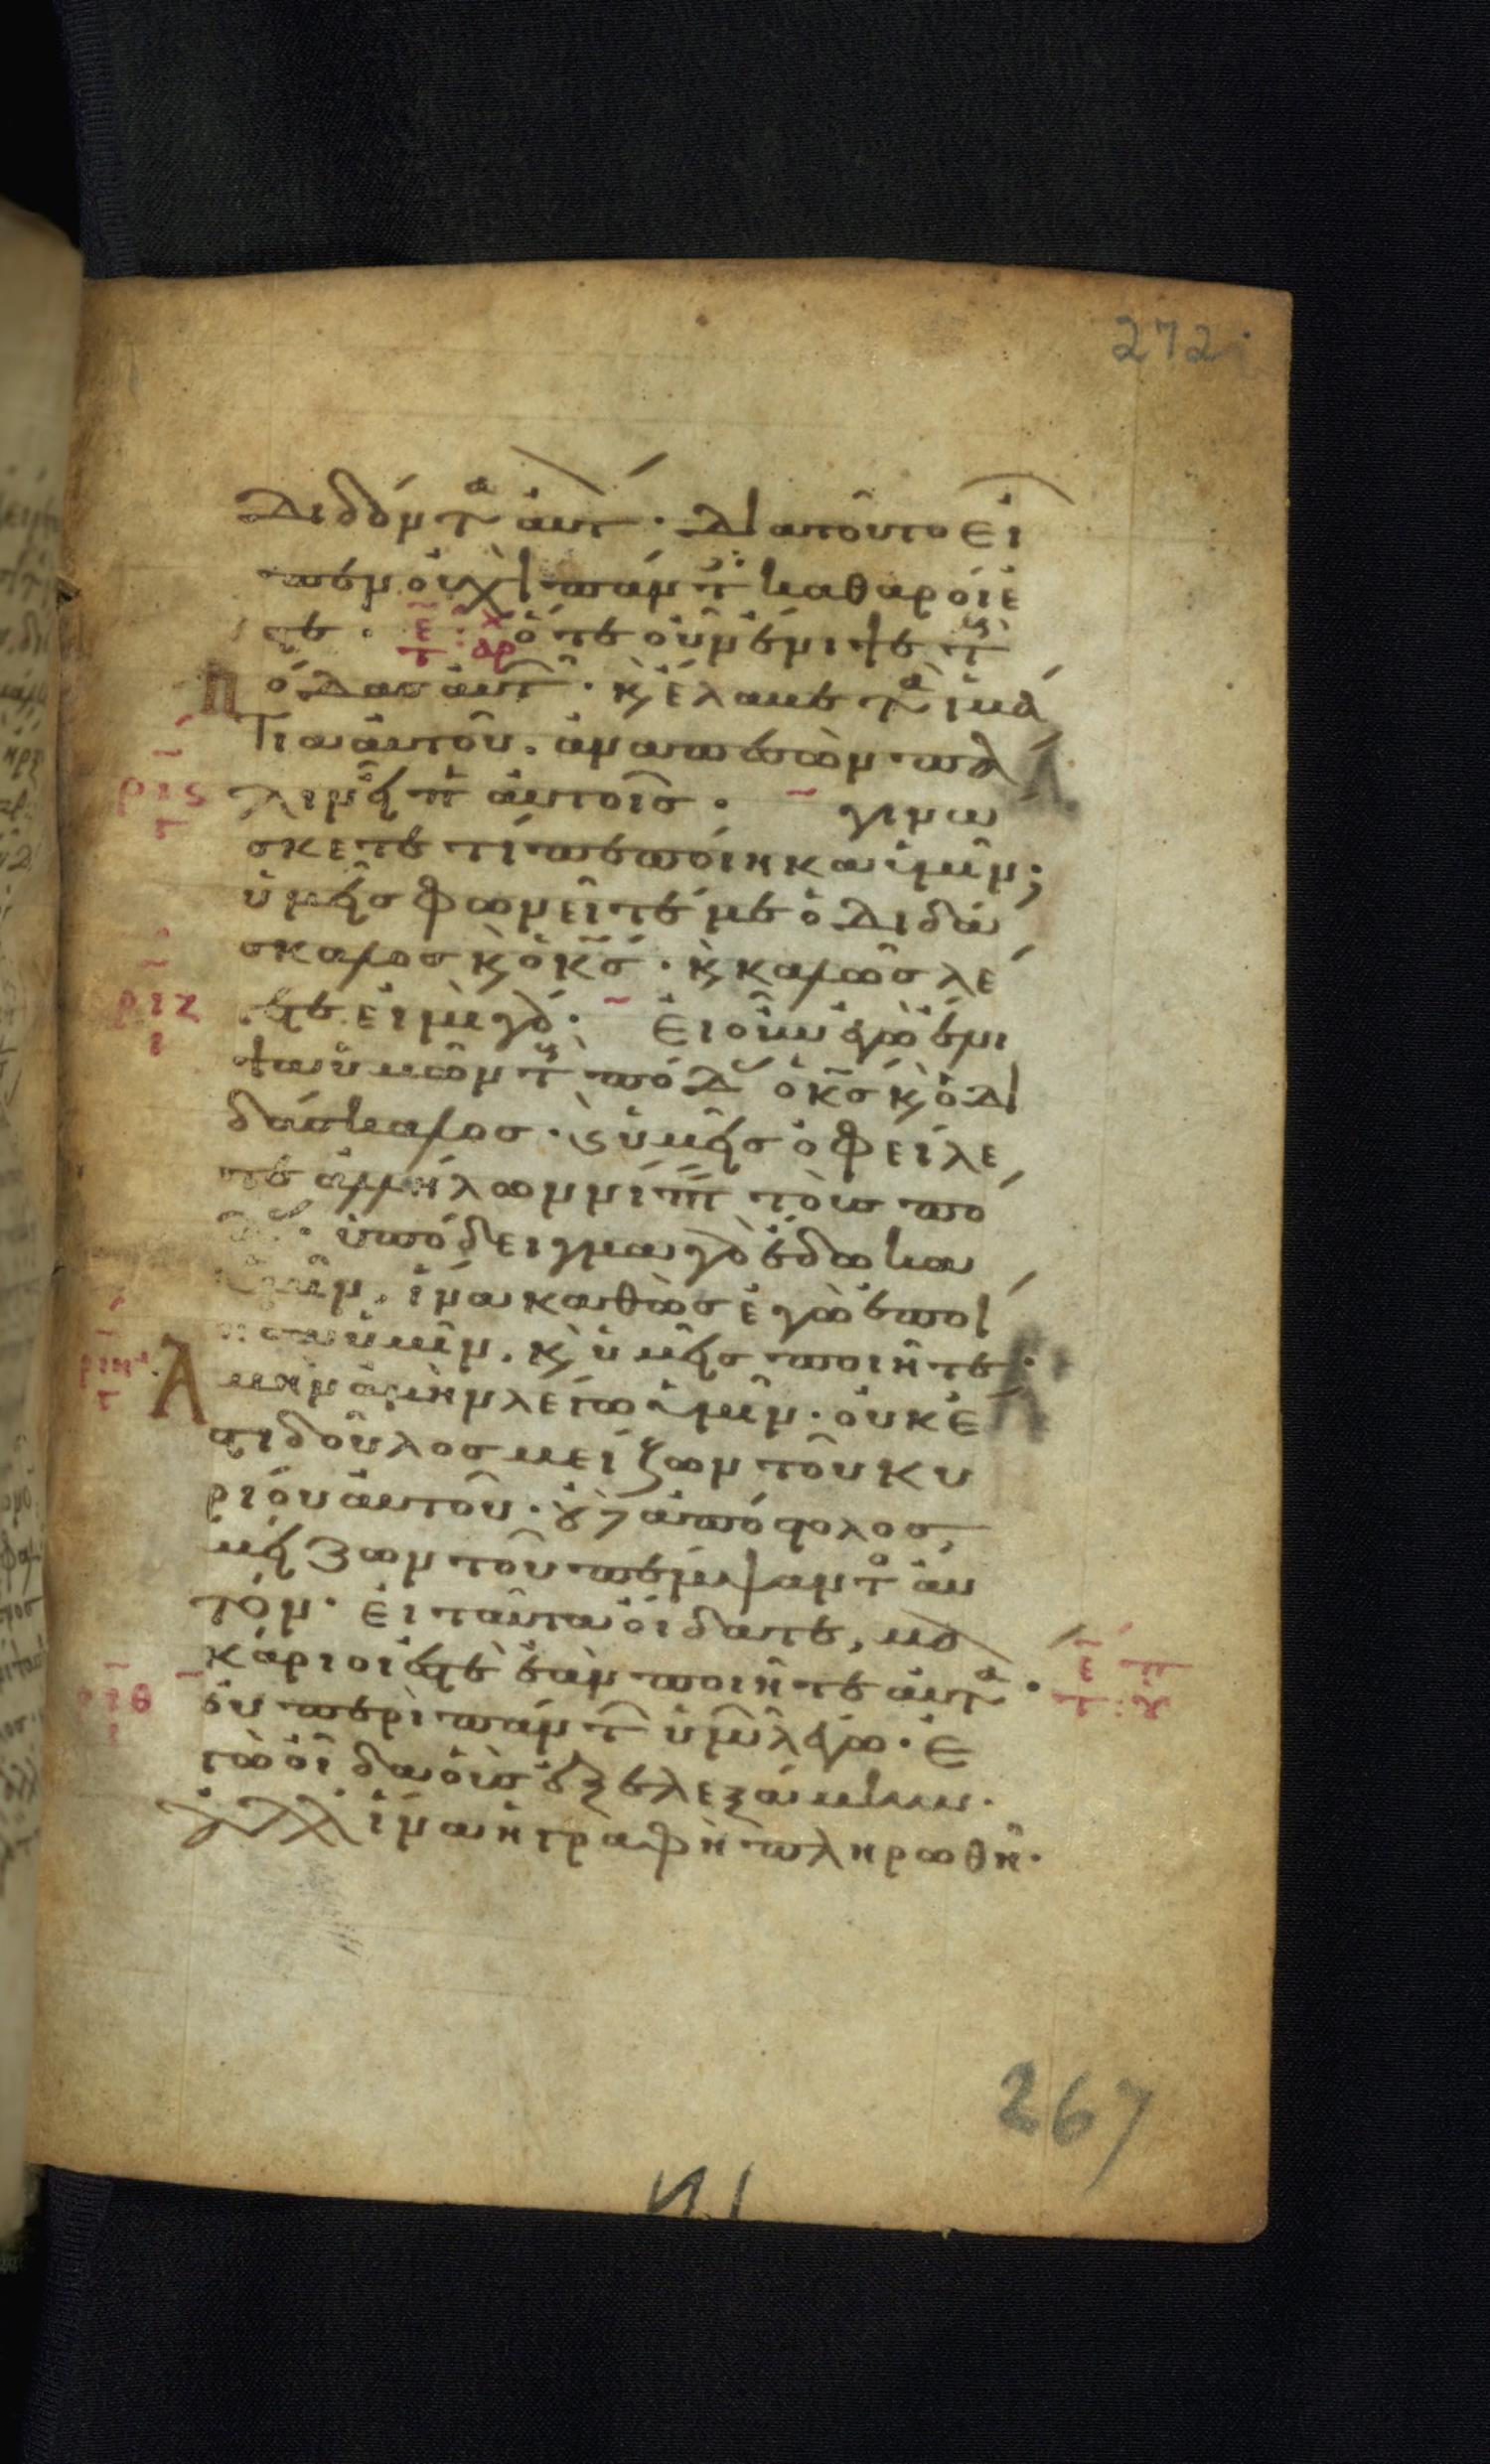 272
διδόντα αὐτ · διατοῦτο εἶ
πεν οὐχὶ πάντ καθαροί ἐ
στε · ὅτε οὖν ἔνιψε τ
πόδασ αὐτ · κ ἔλαβε τὰ ἱμά
τια αὐτοῦ · ἀναπεσὼν πά
λιν εἶπ αὐτοῖσ · γινώ
σκετε τί πεποίηκα ὑμῖν ;
ὑμεῖσ φωνεῖτέ με ὁ διδά
σκαλοσ κ ὁ κσ · κ καλῶσ λέ
γετε εἰμὶ γάρ · εἰ οὖν ἐγὼ ἔνι
ψα ὑμῶν τ πόδ ὁ κσ κ ὁ δι
δάσκαλοσ · κ ὑμεῖσ ὀφείλε
τε ἀλλήλων νίπτ τοὺσ πό
δ · ὑπόδειγμα γὰρ ἔδωκα
ὑμῖν · ἵνα καθὼσ ἐγὼ ἐποί
ησα ὑμῖν · κ ὑμεῖσ ποιῆτε ·
Ἀμὴν ἀμὴν λέγω ὑμῖν · οὐκ ἔ
στι δοῦλοσ μείζων τοῦ κυ
ρίου αὐτοῦ · οὐδ ἀπόστολοσ
μείζων τοῦ πέμψαντο αὐ
τόν · εἰ ταῦτα οἴδατε , μα
κάριοί ἐστε ἐὰν ποιῆτε αὐτά ·
οὐ περὶ πάντ ὑμῶν λέγω · ἐ
γὼ οἶδα οὓσ ἐξελεξάμην ·
ἀλλ ἵνα ἡ γραφὴ πληρωθῆ ·
ριϛ
ριζ
ριη
ριθ
267